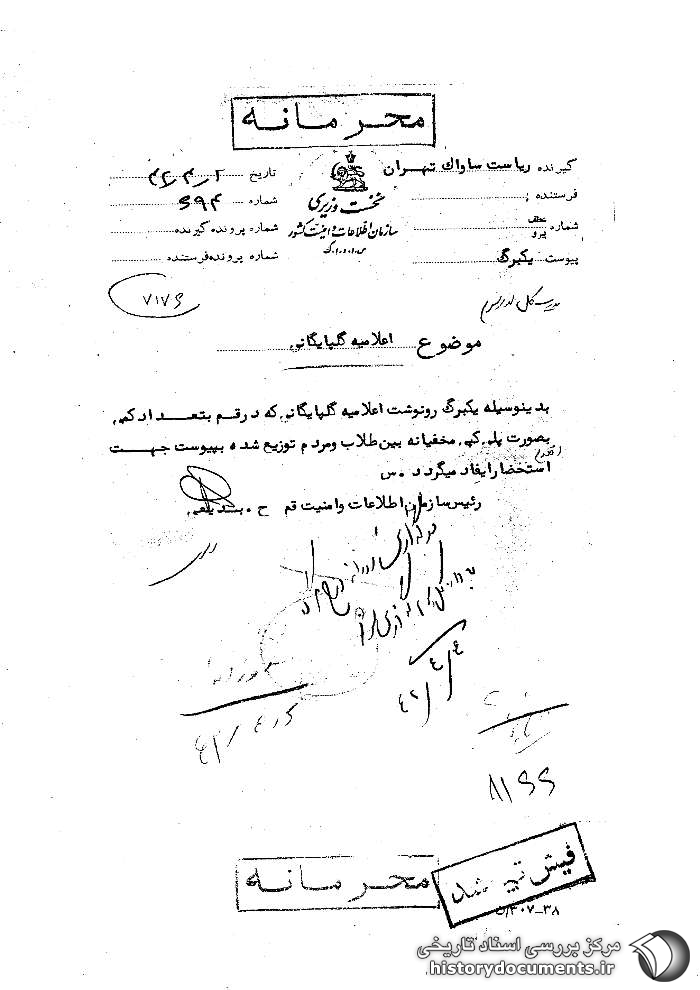 محرمانه
گیرنده ریاست ساواک تهران
فرستنده
شماره عطف پیرو
پیوست یکبرگ
نخست وزیری
سازمان اطلاعات و امنیت کشور
س.ا.و.ا.ک
تاریخ ۴۲/۴/۲
شماره ۶۹۴
شماره پرونده گیرنده
شماره پرونده فرستنده
۷۱۷۶
موضوع اعلامیه گلپایگانی
بدینوسیله یکبرگ رونوشت اعلامیه گلپایگانی که در قم بتعداد کمی
بصورت پلی کپی مخفیانه بین طلاب و مردم توزیع شده بپیوست جهت
استحضار ایفاد میگردد. س
رئیس سازمان اطلاعات و امنیت قم ح. بدیعی
۴۲/۴/۴
۸۱۶۶
محرمانه
فیش تهیه شد
۳۰۷-۳۸
مرکز بررسی اسناد تاریخی
historydocuments.ir